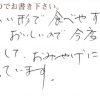 のでお書き下さい。
い形で食べやす
おいしので今店
して、おみやげに
ています。